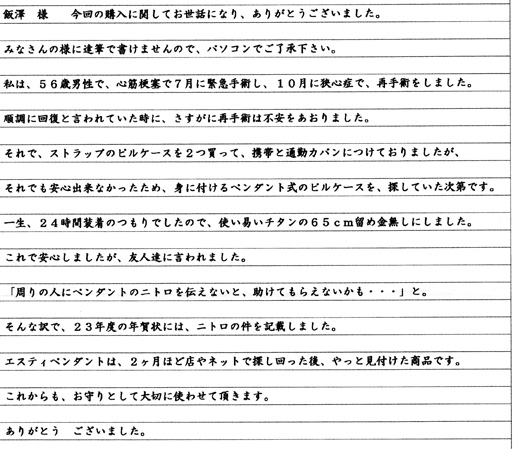 飯澤　様　　今回の購入に関してお世話になり、ありがとうございました。
みなさんの様に達筆で書けませんので、パソコンでご了承下さい。
私は、５６歳男性で、心筋梗塞で７月に緊急手術し、１０月に狭心症で、再手術をしました。
順調に回復と言われていた時に、さすがに再手術は不安をあおりました。
それで、ストラップのピルケースを２つ買って、携帯と通勤カバンにつけておりましたが、
それでも安心出来なかったため、身に付けるペンダント式のピルケースを、探していた次第です。
一生、２４時間装着のつもりでしたので、使い易いチタンの６５ｃｍ留め金無しにしました。
これで安心しましたが、友人達に言われました。
「周りの人にペンダントのニトロを伝えないと、助けてもらえないかも・・・」と。
そんな訳で、２３年度の年賀状には、ニトロの件を記載しました。
エスティペンダントは、２ヶ月ほど店やネットで探し回った後、やっと見付けた商品です。
これからも、お守りとして大切に使わせて頂きます。
ありがとう　ございました。